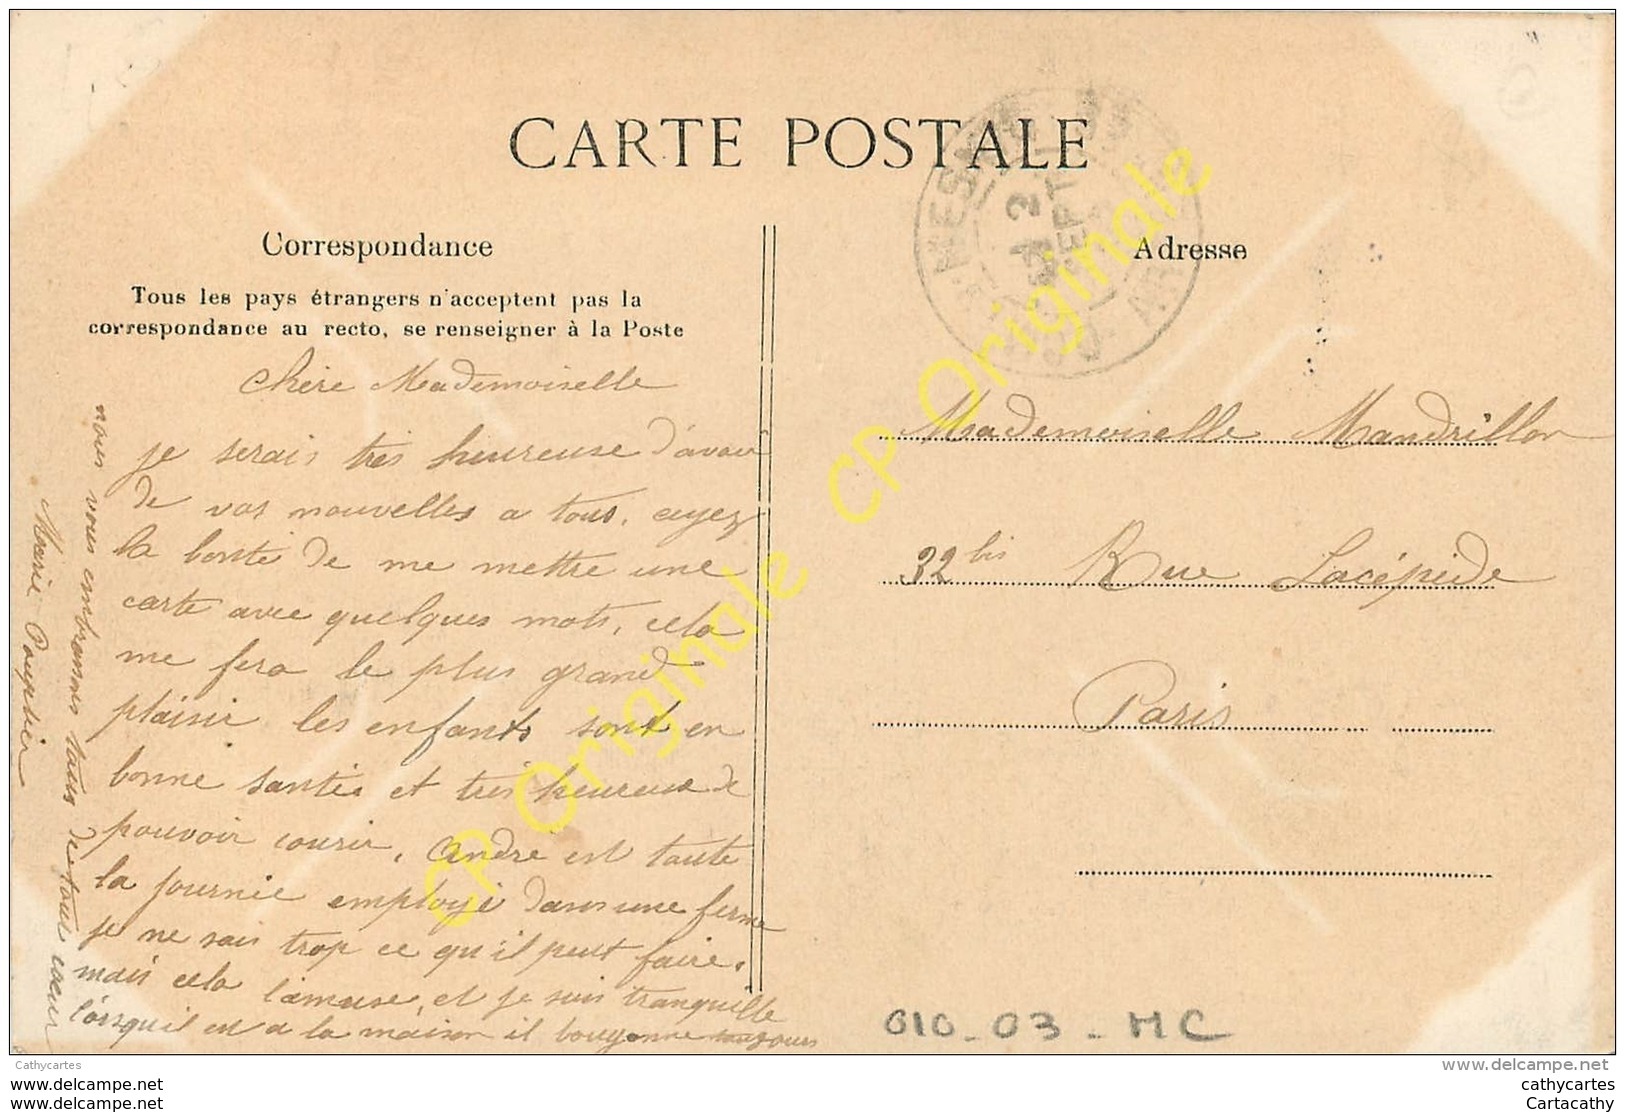 CARTE POSTALE
Correspondance
Tous les pays étrangers n'acceptent pas la
correspondance au recto, se renseigner à la Poste
Chère Mademoiselle
je serais très heureuse d'avoir
de vos nouvelles a tous, ayez
la bonté de me mettre une
carte avec quelques mots, cela
me fera le plus grand
plaisir les enfants sont en
bonne santé et très heureux de
pouvoir courir, André est toute
la journée employé dans une ferme
je ne sais trop ce qu'il peut faire,
mais cela l'amuse, et je suis tranquille
lorsqu'il est a la maison il bougonne toujours
nous vous embrassons tous de tout coeur
Marie Poupelier
Adresse
Mademoiselle Mandrillon
32 bis Rue Lacépède
Paris
2
SEPT
010_03_MC
CP Originale
CP Originale
Cathycartes
www.delcampe.net
www.delcampe.net
www.delcampe.net
cathycartes
Cartacathy